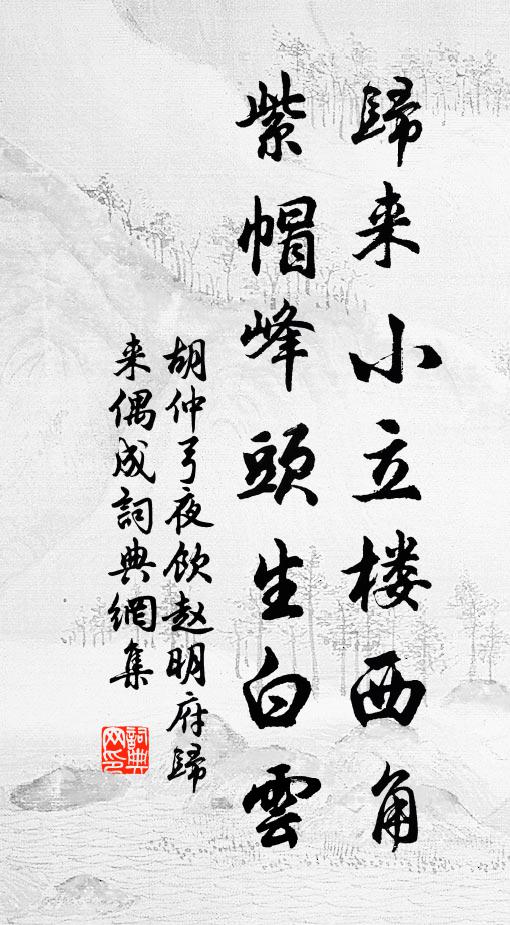 歸来小立楼西角
紫帽峰頭生白雲
胡仲弓夜饮赵明府歸
来偶成詞典網集
詞典
网印